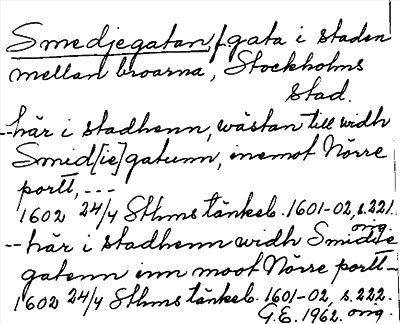 Smedjegatan, f. gata i staden
mellan broarna, Stockholms
stad.
--här i stadhenn, wästan till widh
Smid[ie]gatunn, inemot Nörre
portt, ---
1602 24/4 Sthms tänkeb. 1601-02, s. 221.
orig.
--här i stadhenn widh Smidie
gatenn inn moot Nörre portt-
1602 24/4 Sthms tänkeb. 1601-02, s. 222.
G.E. 1962. orig.